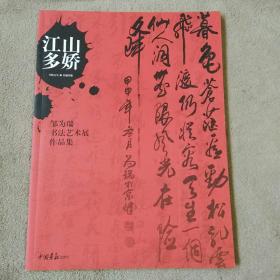 江山
多娇
邹为瑞
书法艺术展
作品集
暮色苍茫看劲松乱云
飞渡仍从容天生一个
仙人洞无限风光在险
峰 甲申年